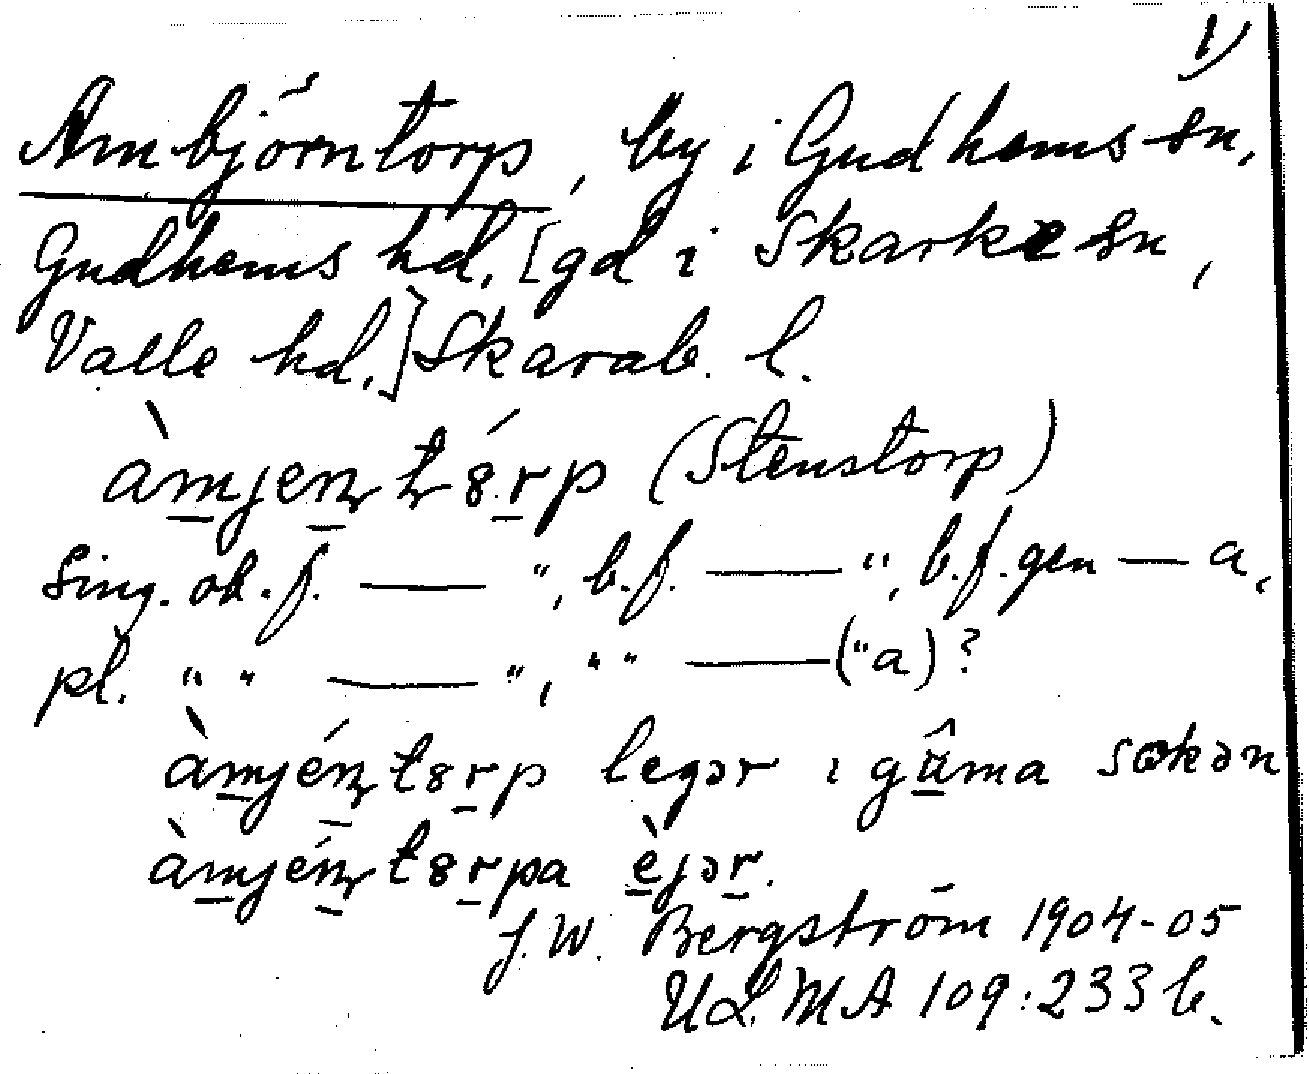 1)
Ambjörntorp, by i Gudhems sn,
Gudhems hd. [gd i Skarke sn,
Valle hd.] Skarab. l.
àmjentȣ́rp (Stenstorp)
Sing. ob. f. — ", b.f. — ", b.f. gen — a,
pl. " " — ", " " — ("a)?
àmjéntȣrp legər i gûma sokən
àmjéntȣrpa èjər.
J. W. Bergström 1904-05
ULMA 109:233 b.